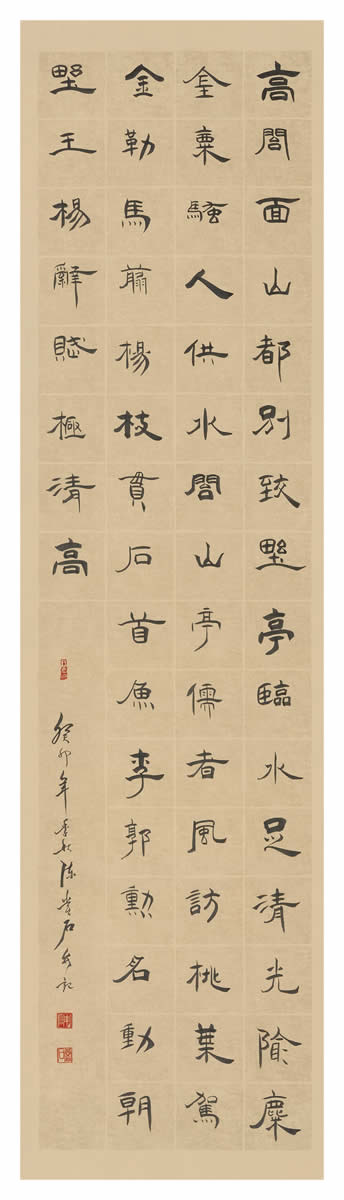 高閣面山都別致野亭臨水足清光隃麋
騷人供水閣山亭儒者風訪桃葉駕
金勒馬翦楊枝貫石首魚李郭勳名動朝
野王楊辭賦極清高
癸卯年季秋陳石記